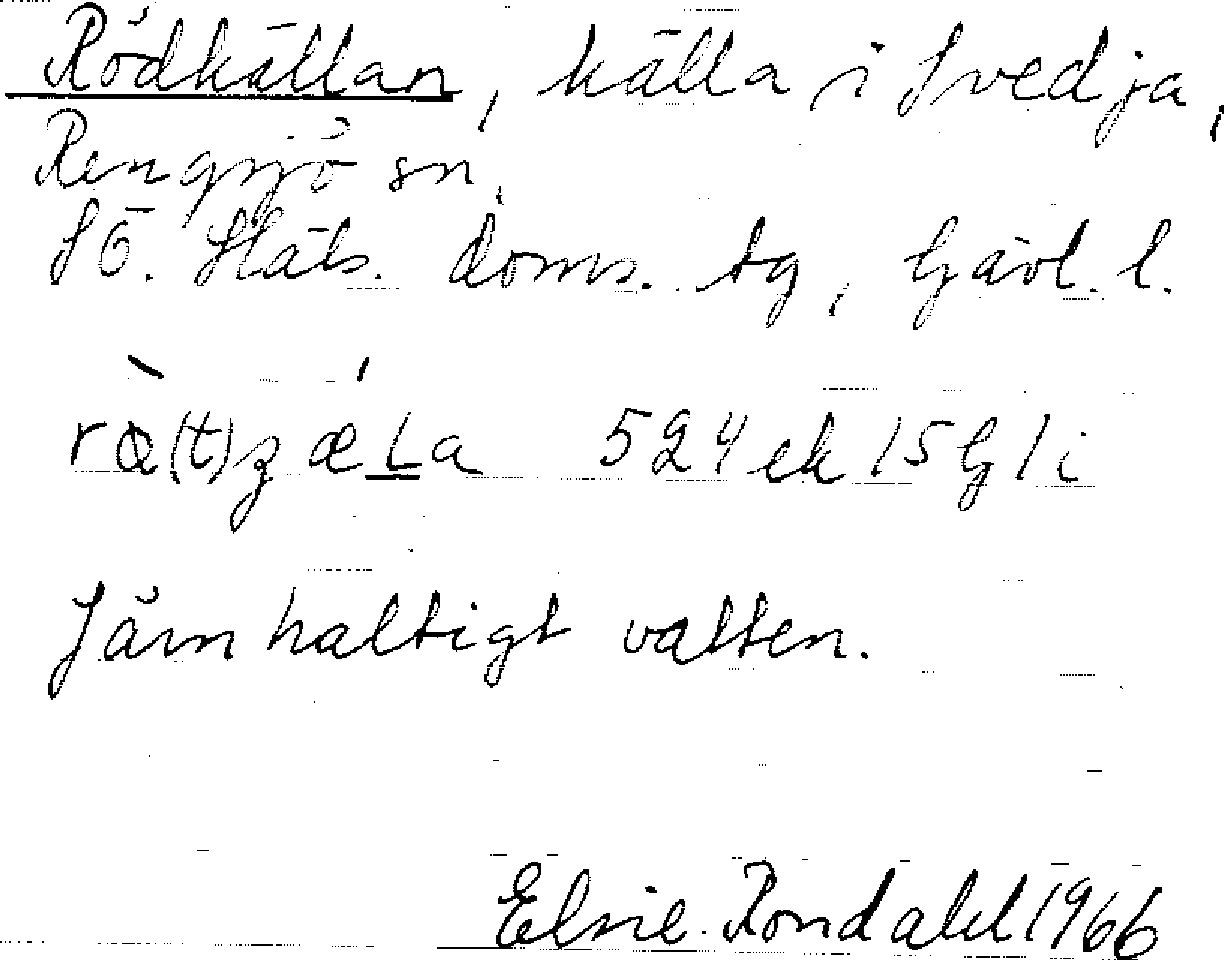 Rödkällan, källa i Svedja,
Rengsjö sn.
SÖ. Häls. doms. tg, Gävl. l.
rö̀(t)zǽLa 524 ek 15 G 1 i
Järnhaltigt vatten.
Elsie Rondahl 1966